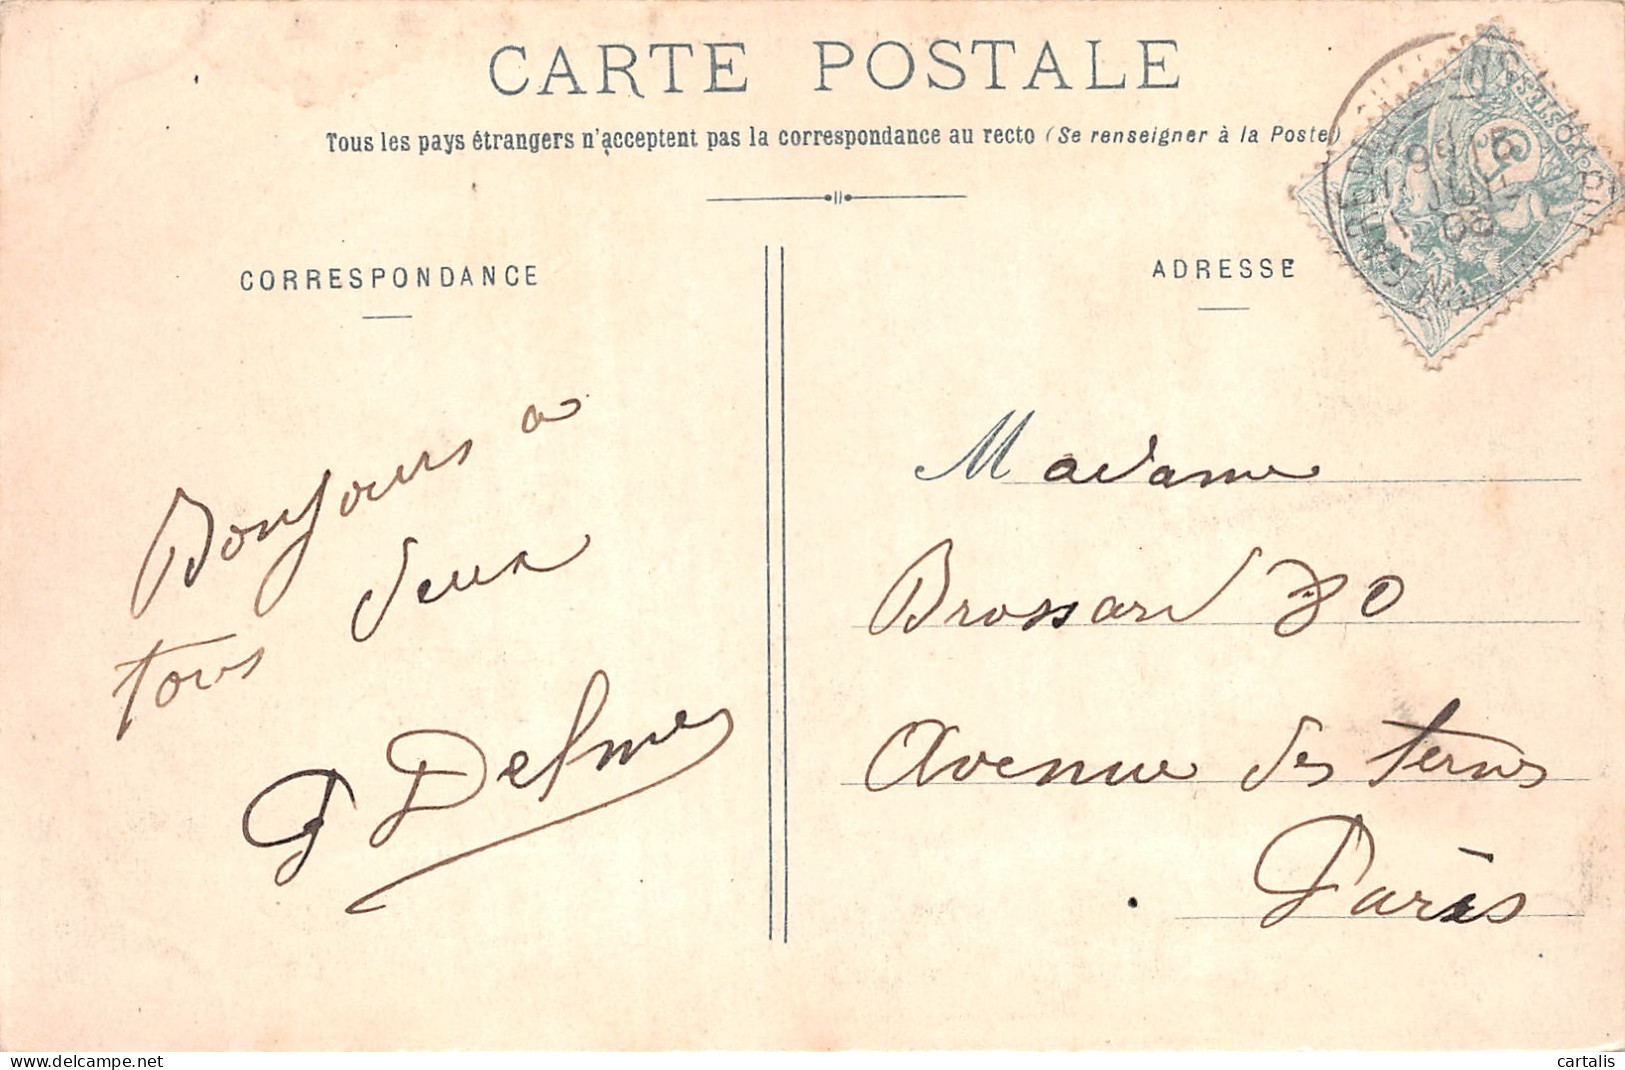 CARTE POSTALE
Tous les pays étrangers n'acceptent pas la correspondance au recto (Se renseigner à la Poste)
CORRESPONDANCE
ADRESSE
Bonjours a
tous deux
P Delmes
Madame
Brossard 80
Avenue des ternes
Paris
POSTES
JUIL
08
cartalis